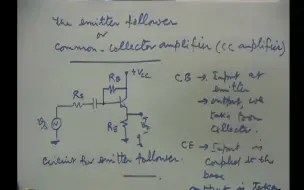 The emitter follower
or
Common-collector amplifier (CC amplifier)
+VCC
RB
RS
RE
VS
Circuit for emitter follower.
CB → Input at
emitter
→ output, we
take from
collector.
CE → Input is
coupled to the
base
output is taken